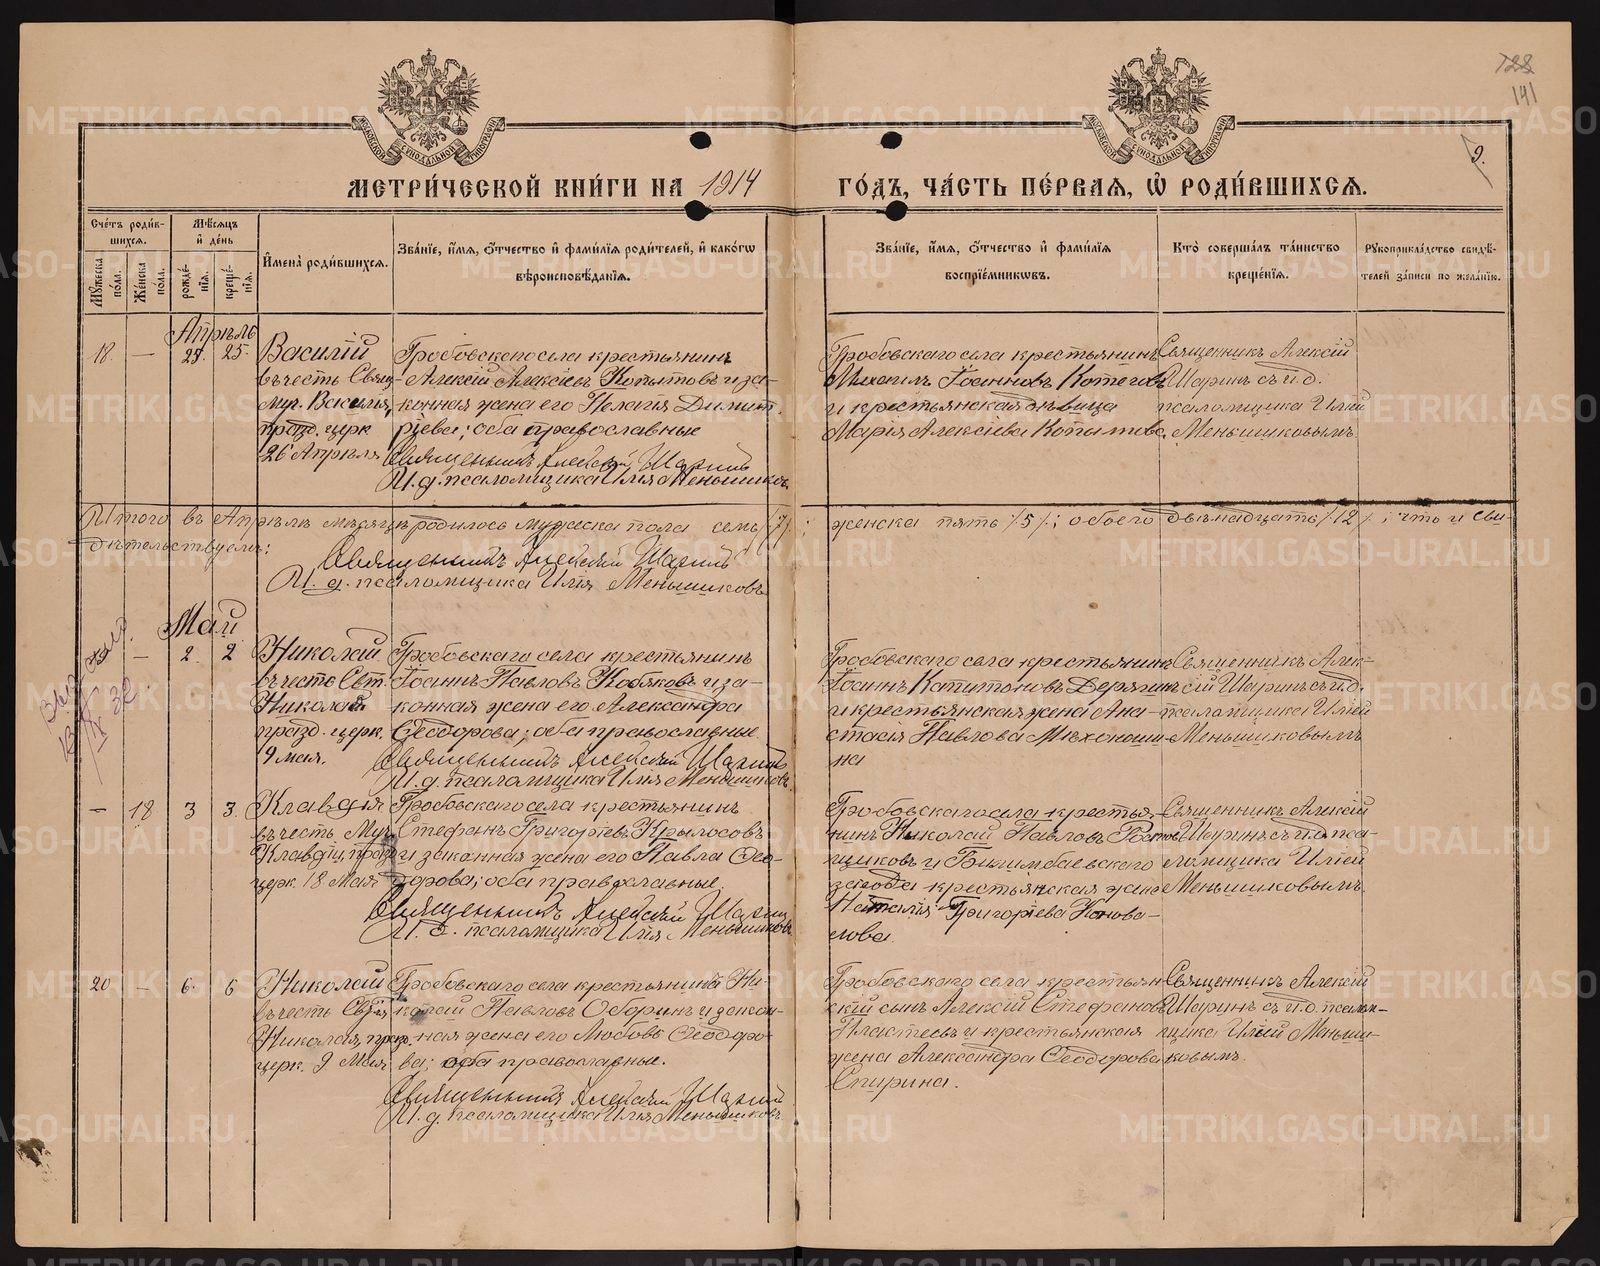 728
141
9.
МЕТРИ́ЧЕСКОЙ КНИ́ГИ НА 1914 ГО́ДЪ, ЧА́СТЬ ПЕ́РВАЯ, Ѿ РОДИ́ВШИХСЯ.
Сче́тъ роди́в-
шихся.
Му́жеска по́ла.
Же́нска по́ла.
Мѣ́сяцъ и де́нь
рожде́-
нїя.
креще́-
нїя.
И҆мена̀ роди́вшихся.
Зва́нїе, и҆́мя, ѻ҆́тчество и҆ фами́лїя роди́телей, и҆ како́гѡ
вѣроисповѣ́данїя.
Зва́нїе, и҆́мя, ѻ҆́тчество и҆ фами́лїя
воспрїе́мникѡвъ.
Кто̀ соверша́лъ та́инство
креще́нїя.
Рукоприкла́дство свидѣ́-
телей за́писи по жела́нїю.
Апрѣль
18. — 25. 25.
Василій
въ честь Свящ-
муч. Василія,
празд. церк
26 Апрѣля
Гробовскаго села крестьянинъ
Алексій Алексіевъ Копытовъ и за-
конная жена его Пелагія Димит-
ріева; оба православные
Священникъ Алексій Шаринъ
И. д. псаломщика Илія Меньшиковъ
Гробовскаго села крестьянинъ
Михаилъ Іоанновъ Котеговъ
и крестьянская дѣвица
Марія Алексіева Копытова.
Священникъ Алексій
Шаринъ съ и. д.
псаломщика Иліей
Меньшиковымъ.
Итого въ Апрѣлѣ мѣсяцѣ родилось мужеска пола семь /7/; женска пять /5/; обоего двѣнадцать /12/; что и сви-
дѣтельствуемъ:
Священникъ Алексій Шаринъ
И. д. псаломщика Илія Меньшиковъ
Май
19 — 2. 2
Николай
въ честь Свт.
Николая
празд. церк.
9 мая.
Гробовскаго села крестьянинъ
Іоаннъ Павловъ Кодяковъ и за-
конная жена его Александра
Ѳеодорова; оба православные.
Священникъ Алексій Шаринъ
И. д. псаломщика Илія Меньшиковъ
Гробовскаго села крестьянинъ
Іоаннъ Капитоновъ Дерягинъ
и крестьянская жена Ана-
стасія Павлова Мюхоноши-
на
Священникъ Алек-
сій Шаринъ съ и. д.
псаломщика Иліей
Меньшиковымъ
— 18 3 3.
Клавдія
въ честь Муч.
Клавдіи, празд
церк. 18 Мая
Гробовскаго села крестьянинъ
Стефанъ Григоріевъ Крылосовъ
и законная жена его Павла Ѳео-
дорова; оба православные.
Священникъ Алексій Шаринъ
И. д. псаломщика Илія Меньшиковъ
Гробовскаго села крестья-
нинъ Николай Павловъ Росто-
щиковъ и Билимбаевскаго
завода крестьянская жена
Наталія Григоріева Конова-
лова.
Священникъ Алексій
Шаринъ съ и. д. пса-
ломщика Иліей
Меньшиковымъ.
20 — 6. 6
Николай
въ честь Свят.
Николая, празд.
церк. 9 Мая
Гробовскаго села крестьянинъ Ни-
колай Павловъ Оборинъ и закон-
ная жена его Любовь Ѳеодоро-
ва; оба православные.
Священникъ Алексій Шаринъ
И. д. псаломщика Илія Меньшиковъ
Гробовскаго села крестьян-
скій сынъ Алексій Стефановъ
Пластеевъ и крестьянская
жена Александра Ѳеодорова
Спирина.
Священникъ Алексій
Шаринъ съ и. д. псалом-
щика Иліей Меньши-
ковымъ.
METRIKI.GASO-URAL.RU